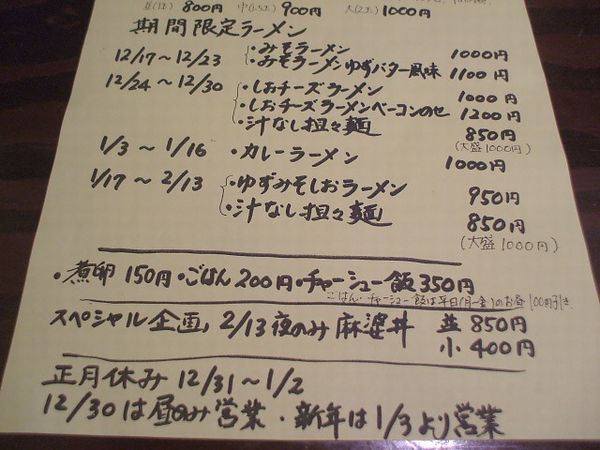 並(1玉) 800円 中(1.5玉) 900円 大(2玉) 1000円
期間限定ラーメン
12/17〜12/23 ・みそラーメン 1000円
・みそラーメンゆずバター風味 1100円
12/24〜12/30 ・しおチーズラーメン 1000円
・しおチーズラーメンベーコンのせ 1200円
・汁なし担々麺 850円
(大盛1000円)
1/3〜1/16 ・カレーラーメン 1000円
1/17〜2/13 ・ゆずみそしおラーメン 950円
・汁なし担々麺 850円
(大盛1000円)
・煮卵150円・ごはん200円・チャーシュー飯350円
ごはん・チャーシュー飯は平日(月〜金)のお昼100円引き
スペシャル企画, 2/13夜のみ麻婆丼 並 850円
小 400円
正月休み 12/31〜1/2
12/30は昼のみ営業・新年は1/3より営業